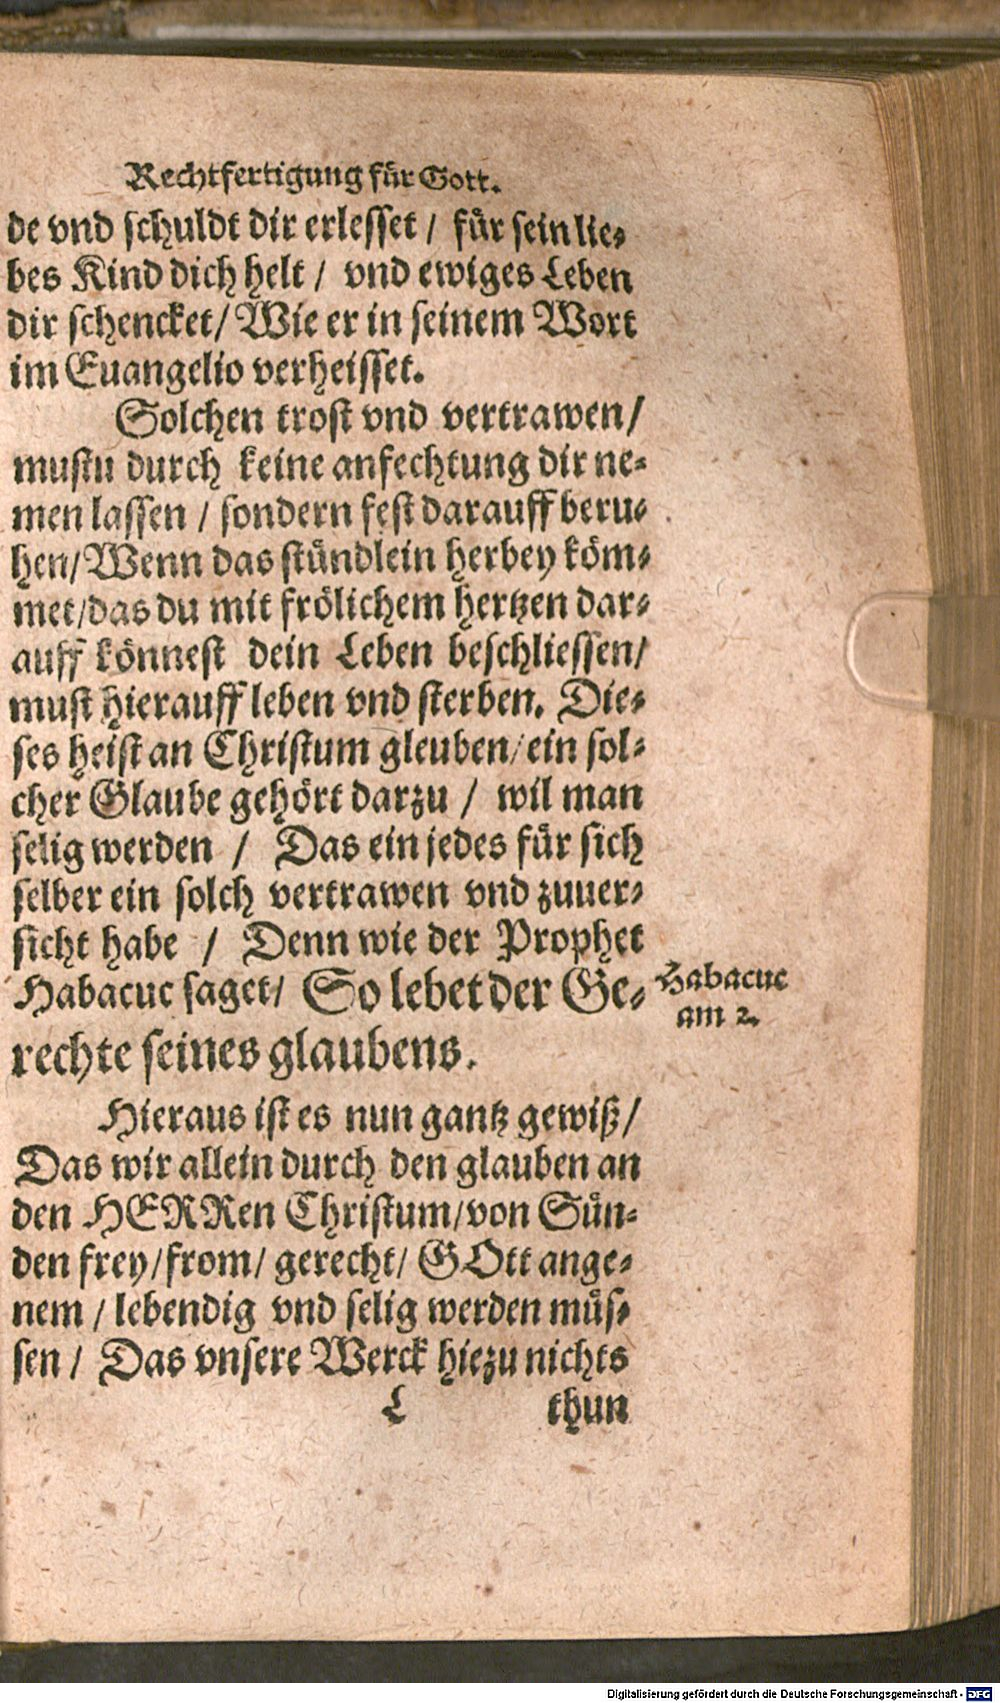 Rechtfertigung für Gott.
de vnd schuldt dir erlesset / für sein lie-
bes Kind dich helt / vnd ewiges Leben
dir schencket / Wie er in seinem Wort
im Euangelio verheisset.
Solchen trost vnd vertrawen /
mustu durch keine anfechtung dir ne-
men lassen / sondern fest darauff beru-
hen / Wenn das stündlein herbey köm-
met / das du mit frölichem hertzen dar-
auff könnest dein Leben beschliessen /
must hierauff leben vnd sterben. Die-
ses heist an Christum gleuben / ein sol-
cher Glaube gehört darzu / wil man
selig werden / Das ein jedes für sich
selber ein solch vertrawen vnd zuuer-
sicht habe / Denn wie der Prophet
Habacuc saget / So lebet der Ge-
rechte seines glaubens.
Habacuc
am 2.
Hieraus ist es nun gantz gewiß /
Das wir allein durch den glauben an
den HERRen Christum / von Sün-
den frey / from / gerecht / GOtt ange-
nem / lebendig vnd selig werden müs-
sen / Das vnsere Werck hiezu nichts
L thun
Digitalisierung gefördert durch die Deutsche Forschungsgemeinschaft - DFG